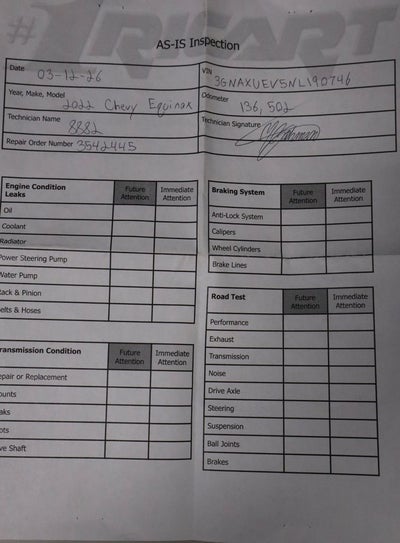 #TRICART
AS-IS Inspection
Date 03-12-26
VIN 3GNAXUEV5NL190746
Year, Make, Model 2022 Chevy Equinox
Odometer 136,502
Technician Name 8882
Technician Signature
Repair Order Number 3542445
Engine Condition Leaks Future Attention Immediate Attention
Oil
Coolant
Radiator
Power Steering Pump
Water Pump
Rack & Pinion
Belts & Hoses
Transmission Condition Future Attention Immediate Attention
epair or Replacement
ounts
aks
ots
ve Shaft
Braking System Future Attention Immediate Attention
Anti-Lock System
Calipers
Wheel Cylinders
Brake Lines
Road Test Future Attention Immediate Attention
Performance
Exhaust
Transmission
Noise
Drive Axle
Steering
Suspension
Ball Joints
Brakes